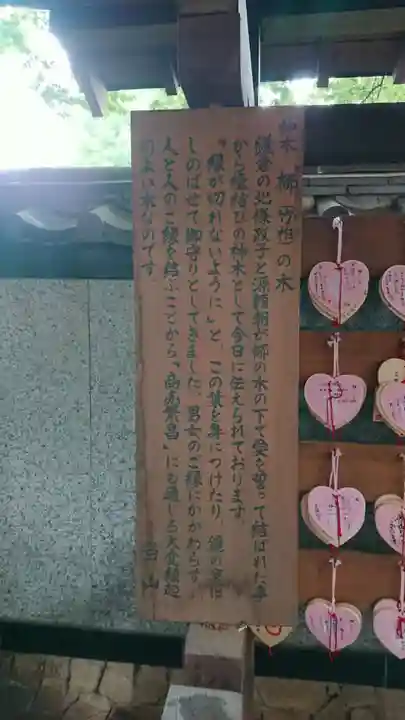 神木 梛(竹柏)の木
鎌倉の北條政子と源頼朝が梛の木の下で愛を誓って結ばれた事
から縁結びの神木として今日に伝えられております。
“縁が切れないように”と、この葉を身につけたり、鏡の裏に
しのばせて御守りとしてきました。男女のご縁にかかわらず、
人と人のご縁を結ぶことから“商売繁昌”にも通じる大変縁起
のよい木なのです。
当山